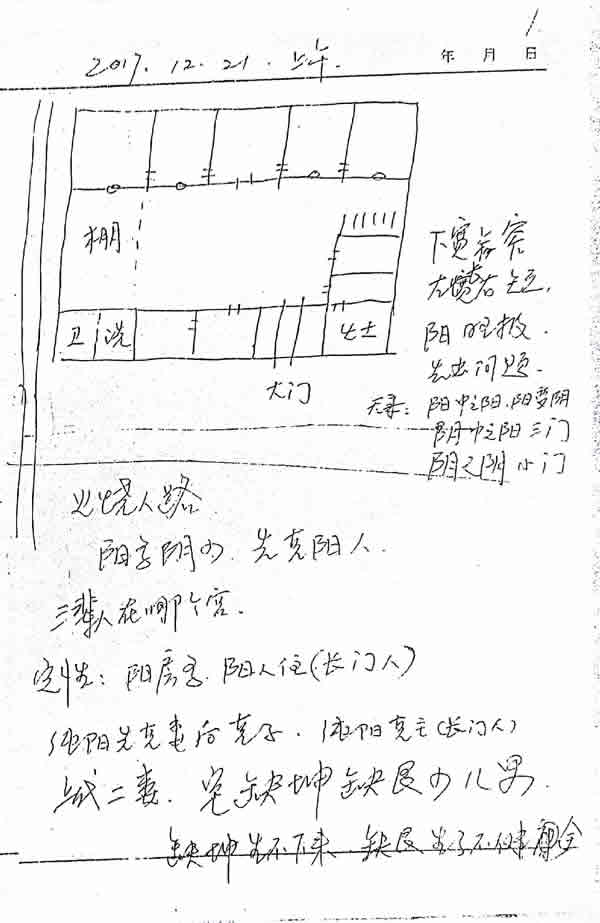 1
2017.12.21.上午.
年 月 日
棚
下宽上窄
左宽右短.
阳旺极.
先出问题.
卫 洗
灶
大门
阳中之阳.阳变阴
阴中之阳 三门
阴之阴 小门
火烧人路
阳多阴少.先克阳人.
三辈人在哪个宫.
定性:阳房多.阳人住(长门人)
纯阳先克妻后克子.纯阳克主(长门人)
二妻.宅缺坤缺艮少儿男.
缺坤生不下来.缺艮生子不健全